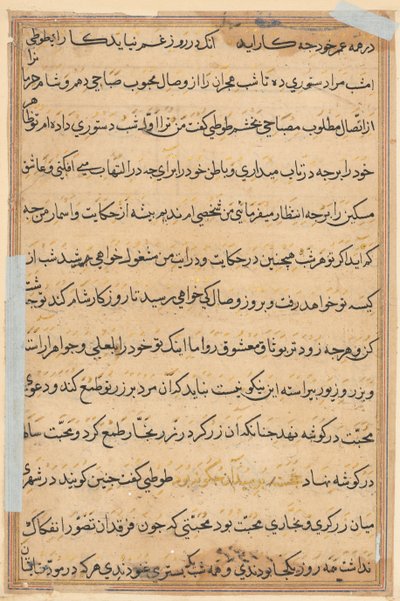 در همه عمر خود چه کار آید انک در روز غم نیاید کار ای طوطی
امشب مرا دستوری ده تا شب هجران را از وصال محبوب صباحی دهم و شام
از اتصال مطلوب مصباحی بخشم طوطی کفت من ترا اول شب دستوری داده ام تو
خود را برچه در تاب میداری و باطن خود را برای چه در التهاب می افکنی و عاشق
مسکین را برچه انتظار میفرمائی من شخصی ام ندیم پیشه از حکایت و اسمار من چه
کم اید اکر تو هر شب همچنین در حکایت و درایت من مشغول خواهی شد شب از
کیسه تو خواهد رفت و بروز وصال کی خواهی رسید تا روز کار شام کند توجه
کن و هرچه زودتر بوثاق معشوق رو اما اینک تو خود را بلعلی و جواهر اراسته
و بزر و زیور پیراسته این نیکو نیست نباید که ان مرد بر زر تو طمع کند و دعوی
محبت در کوشه نهد چنانکه ان زرکر در زر نجار طمع کرد و محبت
در کوشه نهاد طوطی کفت چنین کویند در شهری
میان زرکری و نجاری محبت بود محبتی که چون فرقدان تصور انفکاک
نداشت همه روز یکجا بودندی و همه شب یک بستری غنودندی هر که در مودت